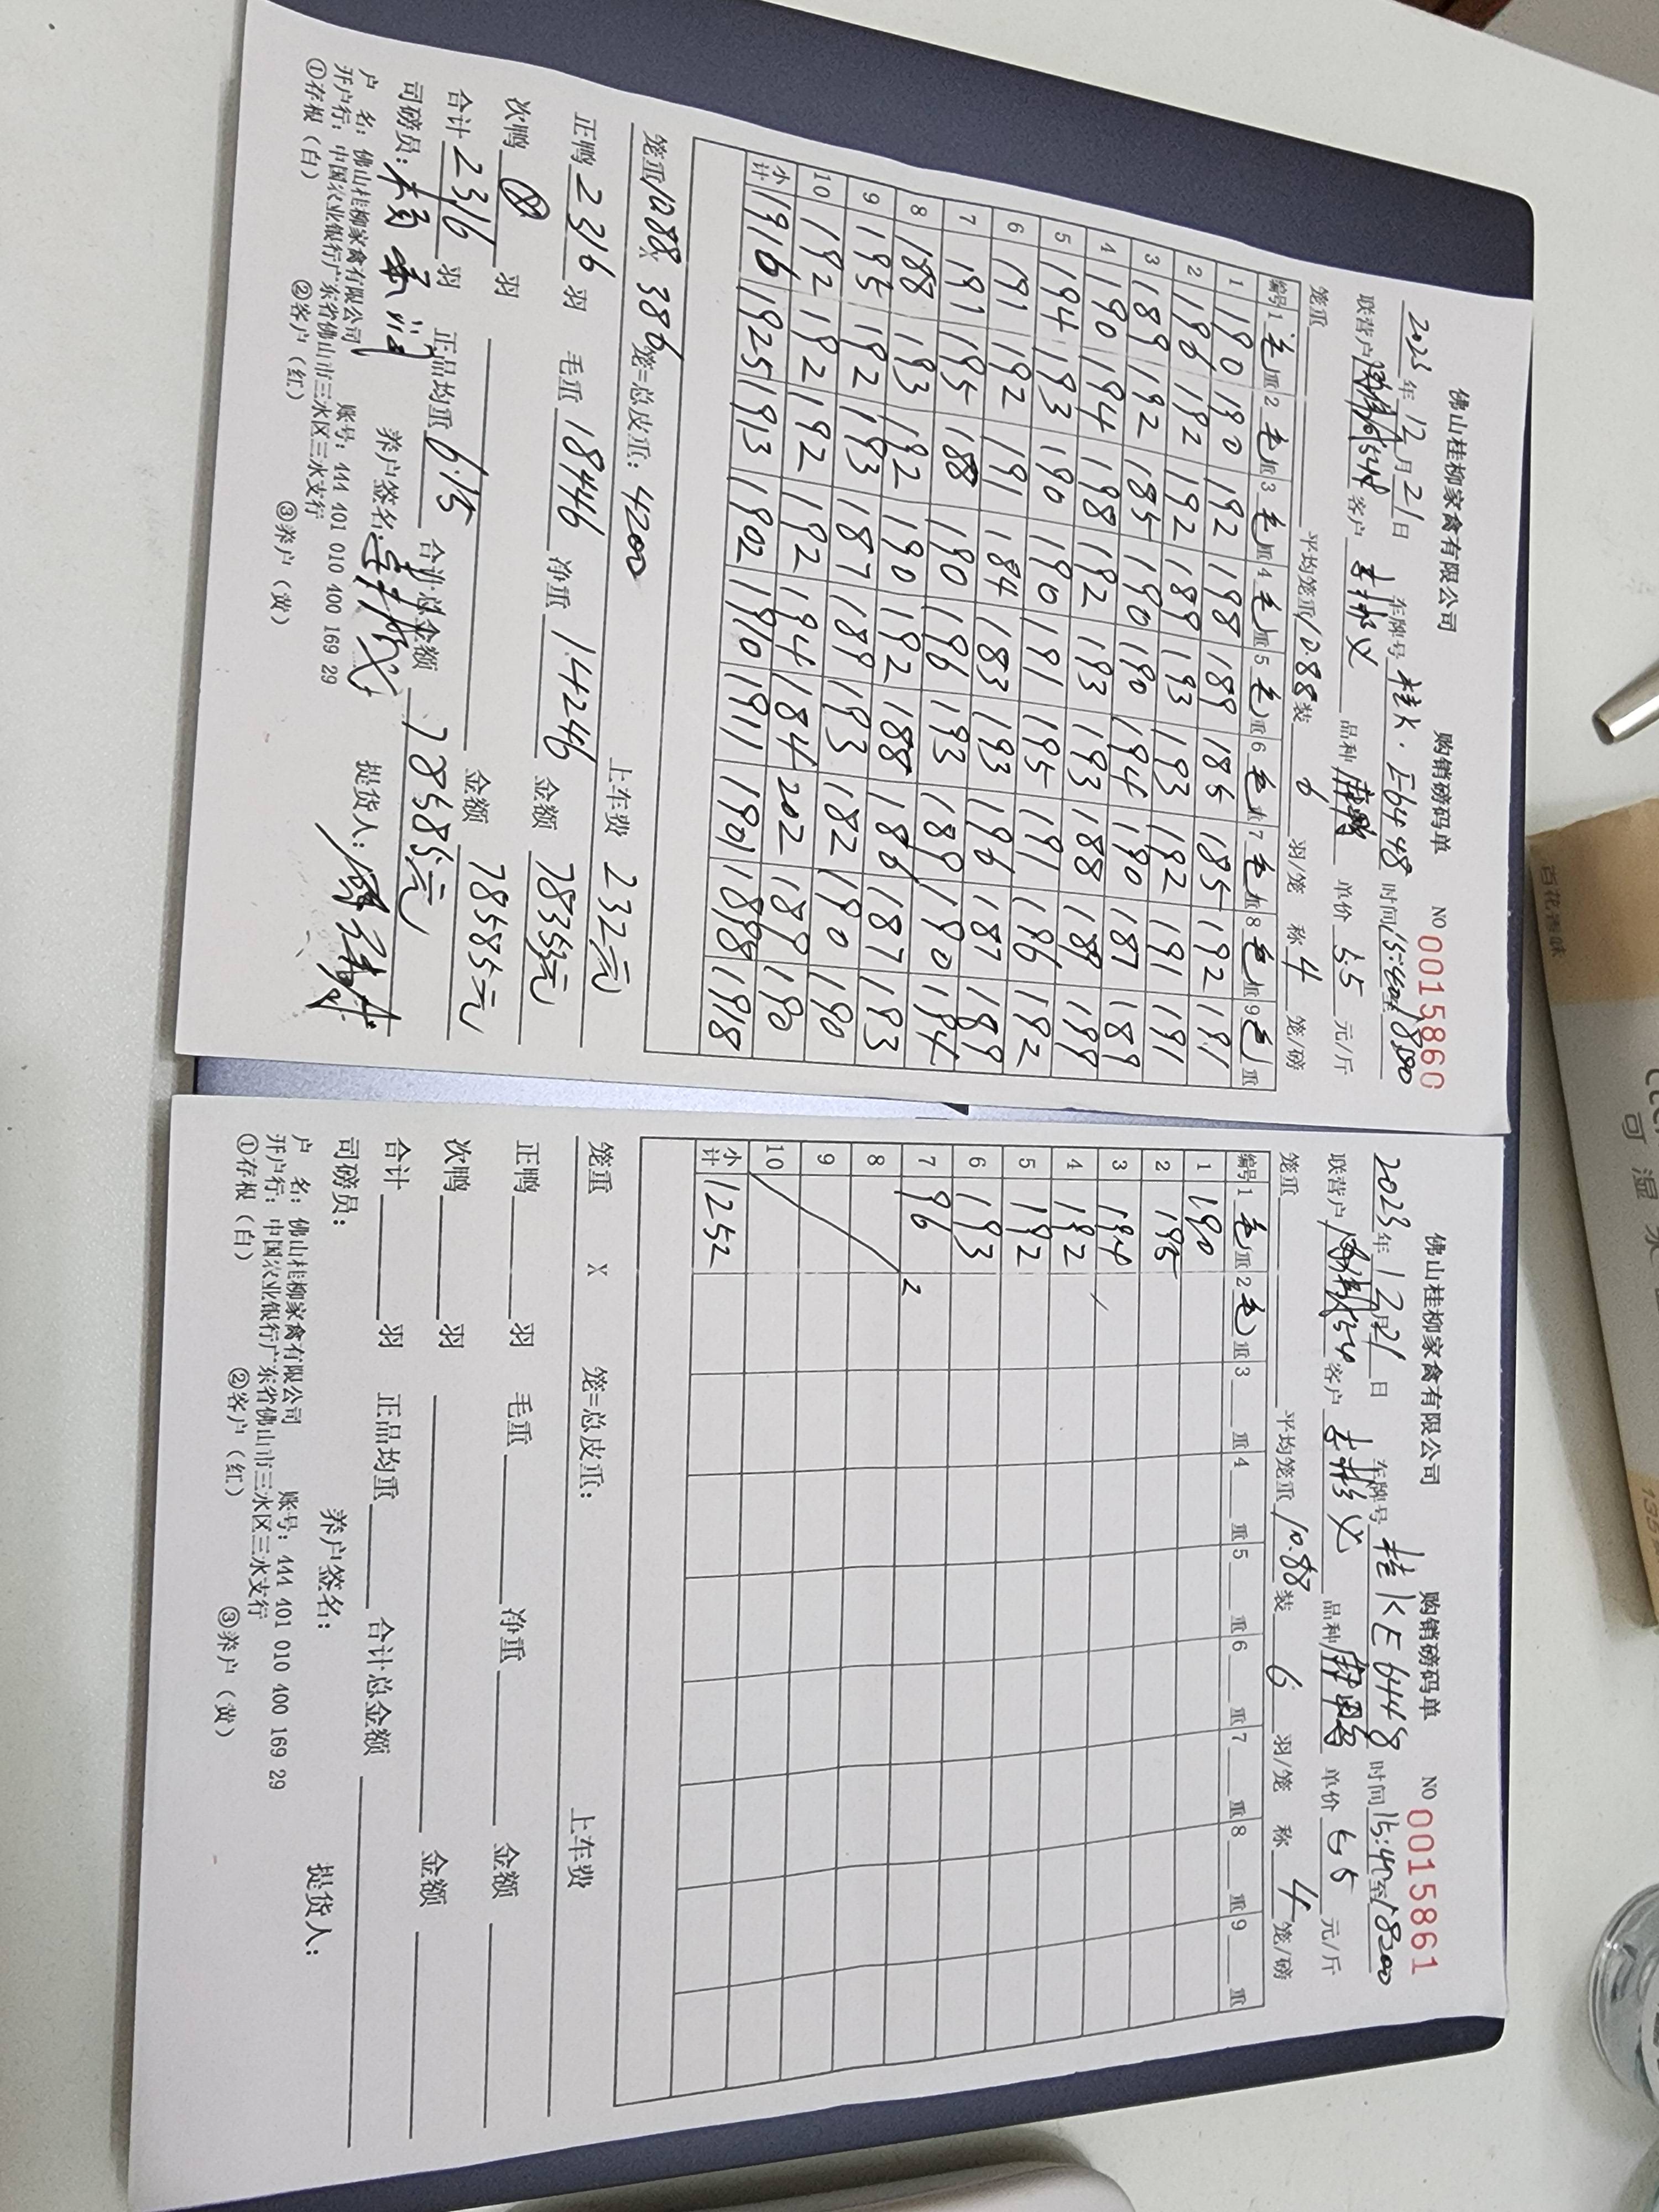 佛山桂柳家禽有限公司 购销磅码单 NO 0015860
2023年12月21日 车牌号 桂K·E6448 时间15:40至18:00
联营户 客户 品种 单价5.5元/斤
笼重 平均笼重10.88 装6羽/笼 称4笼/磅
编号 1毛重 2毛重 3毛重 4毛重 5毛重 6毛重 7毛重 8毛重 9毛重
1 190 190 192 198 189 185 185 192 191
2 196 192 192 189 193 193 192 191 191
3 189 192 185 190 190 194 190 187 189
4 190 194 198 192 193 193 188 189 199
5 194 193 190 190 191 195 191 196 192
6 191 192 191 184 183 193 196 187 189
7 191 195 188 190 196 193 189 190 194
8 188 193 192 190 192 188 186 187 193
9 195 192 193 187 189 193 182 190 190
10 192 192 192 192 194 184 202 189 190
小计 1916 1925 1913 1902 1910 1911 1901 1898 1918
笼重10.88 X 386笼=总皮重:4200 上车费 232元
正鸭2316羽 毛重18446 净重14246 金额78353元
次鸭 羽 金额78585元
合计2316羽 正品均重6.15 合计总金额78585元
司磅员: 养户签名: 提货人:
户 名:佛山桂柳家禽有限公司 账号:444 401 010 400 169 29
开户行:中国农业银行广东省佛山市三水区三水支行
①存根(白) ②客户(红) ③养户(黄)
佛山桂柳家禽有限公司 购销磅码单 NO 0015861
2023年12月21日 车牌号 桂KE6448 时间15:40至18:00
联营户 客户 品种 单价5.5元/斤
笼重 平均笼重10.88 装6羽/笼 称4笼/磅
编号 1毛重 2毛重 3 重 4 重 5 重 6 重 7 重 8 重 9 重
1 190
2 195
3 194
4 192
5 192
6 193
7 96 2
8
9
10
小计 1252
笼重 X 笼=总皮重: 上车费
正鸭 羽 毛重 净重 金额
次鸭 羽 金额
合计 羽 正品均重 合计总金额
司磅员: 养户签名: 提货人:
户 名:佛山桂柳家禽有限公司 账号:444 401 010 400 169 29
开户行:中国农业银行广东省佛山市三水区三水支行
①存根(白) ②客户(红) ③养户(黄)
百花香味